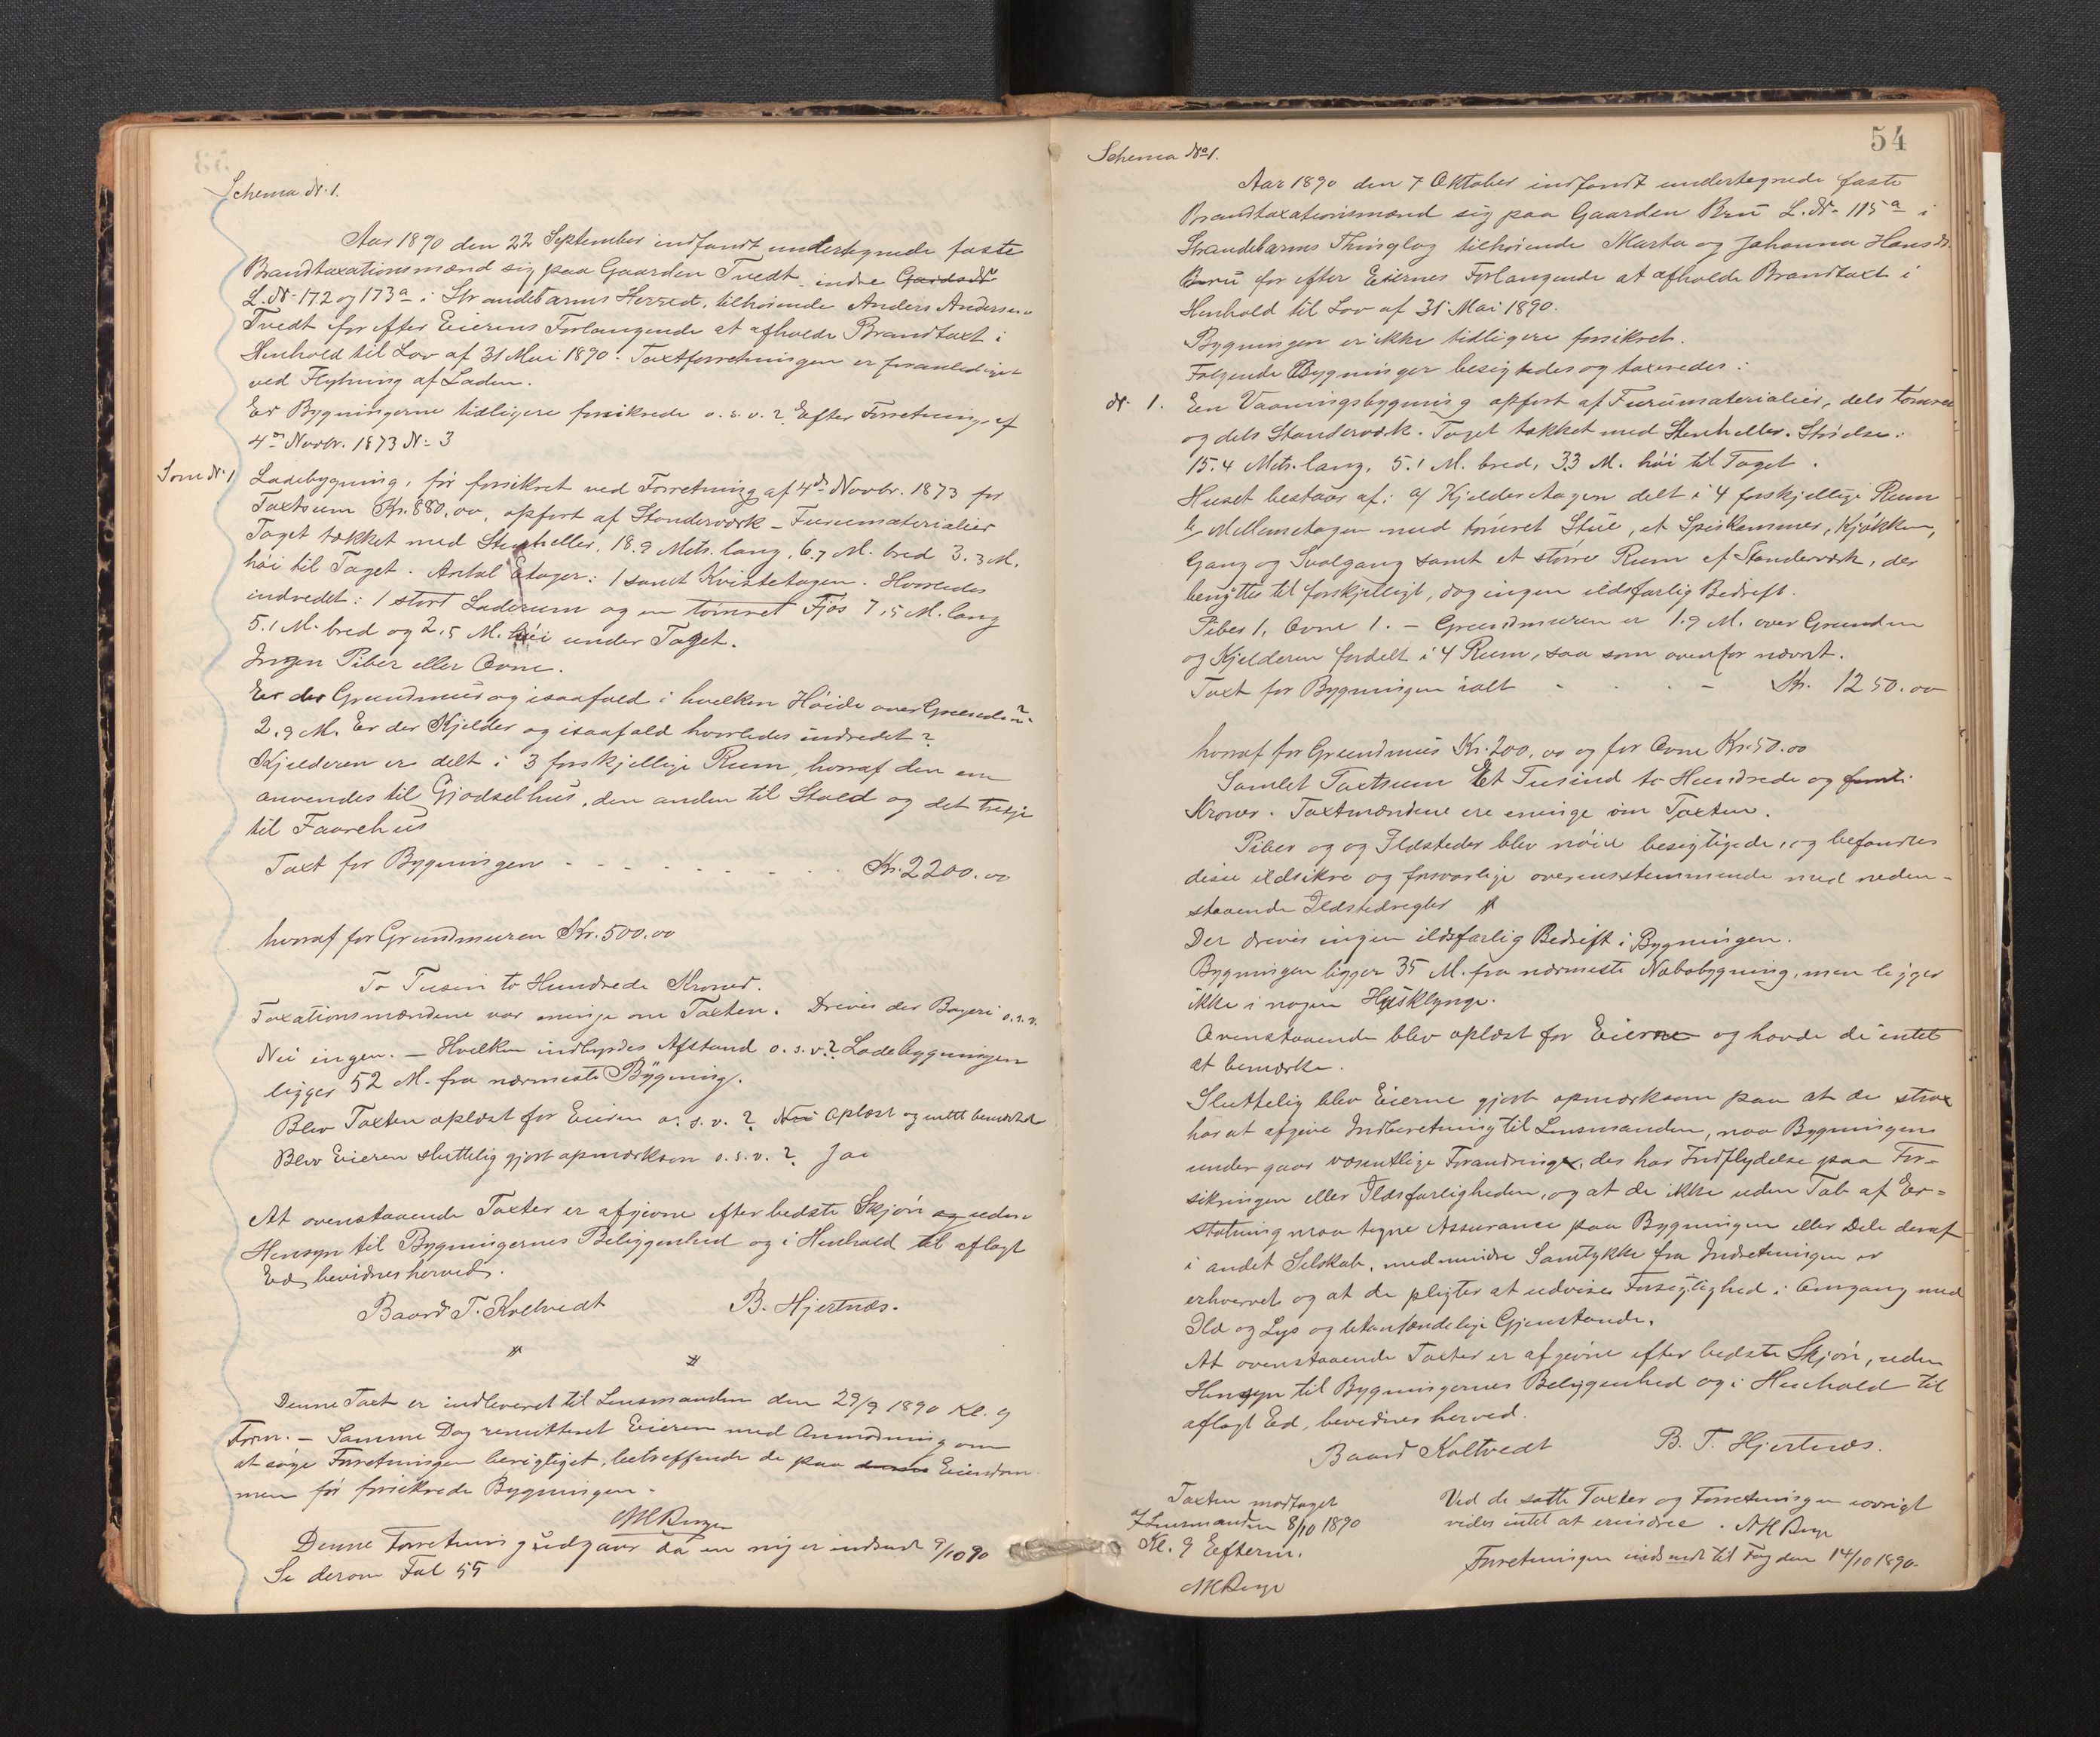 Schema No. 1.
Aar 1890 den 22 September indfandt undertegnede faste
Brandtaxationsmænd sig paa Gaarden Tvedt indre Gaards No
L. No. 172 og 173a i Strandebarms Herred, tilhørende Anders Andersen
Tvedt for efter Eierens Forlangende at afholde Brandtaxt i
Henhold til Lov af 31 Mai 1890. Taxtforretningen er foranlediget
ved Flytning af Laden.
Er Bygningerne tidligere forsikrede o. s. v.? Efter Forretning af
4de Novbr. 1873 No. 3
Som No. 1 Ladebygning, før forsikret ved Forretning af 4de Novbr. 1873 for
Taxtsum Kr. 880,00, opført af Stenderværk – Furumaterialier
Taget tækket med Stenheller, 18.9 Mets. lang, 6.7 M. bred 3.3 M.
høi til Taget. Antal Etager: 1 samt Kvistetagen. Hvorledes
indredet: 1 stort Laderum og en tømret Fjøs 7,5 M. lang
5.1 M. bred og 2,5 M. høi under Taget.
Ingen Piber eller Ovne.
Er der Grundmur og isaafald i hvilken Høide over Grunden?
2.9 M. Er der Kjelder og isaafald hvorledes indredet?
Kjelderen er delt i 3 forskjellige Rum, hvoraf den ene
anvendes til Gjødselhus, den anden til Stald og det tredje
til Faarehus
Taxt for Bygningen - - - - - - - - Kr. 2200.00
hvoraf for Grundmuren Kr. 500.00
To Tusin to Hundrede Kroner.
Taxationsmændene var enige om Taxten. Drives der Bageri o.s.v.
Nei ingen. – Hvilken indbyrdes Afstand o. s. v.? Ladebygningen
ligger 52 M. fra nærmeste Bygning.
Blev Taxten oplæst for Eieren o. s. v.? Nei Oplæst og intet bemærket
Blev Eieren sluttelig gjort opmærksom o. s. v.? Ja
At ovenstaaende Taxter er afgivne efter bedste Skjøn og uden
Hensyn til Bygningernes Beliggenhed og i Henhold til aflagt
Ed bevidnes herved.
Baard T. Koltvedt B. Hjertnæs.
Denne Taxt er indleveret til Lensmanden den 29/9 1890 Kl. 9
Form. – Samme Dag remitteret Eieren med Anmodning om
at søge Forretningen berigtiget, betreffende de paa denne Eiendom
men før forsikrede Bygninger.
Denne Forretning udgaar da en ny er indsendt 9/10 90
Se derom Fol 55
54
Schema No. 1.
Aar 1890 den 7 Oktober indfandt undertegnede faste
Brandtaxationsmænd sig paa Gaarden Bru L. No. 115a i
Strandebarms Thinglag tilhørende Marta og Johanna Hansdr.
Bru for efter Eiernes Forlangende at afholde Brandtaxt i
Henhold til Lov af 31 Mai 1890.
Bygningen er ikke tidligere forsikret.
Følgende Bygninger besigtedes og taxeredes:
No. 1. En Vaaningsbygning opført af Furumaterialier, dels tømret
og dels Standerværk. Taget tækket med Stenheller. Størelse:
15.4 Mets. lang, 5.1 M. bred, 3.3 M. høi til Taget.
Huset bestaar af: a/ Kjelder Etagen delt i 4 forskjellige Rum
b/ Mellemetagen med tømret Stue, et Spiskammer, Kjøkken,
Gang og Svalgang samt et større Rum af Standerværk, der
benyttes til forskjelligt, dog ingen ildsfarlig Bedrift.
Piber 1, Ovne 1. – Grundmuren er 1.9 M. over Grunden
og Kjelderen fordelt i 4 Rum, saa som ovenfor nævnt.
Taxt for Bygningen ialt - - - - Kr. 1250.00
hvoraf for Grundmur Kr. 200,00 og for Ovne Kr. 50.00
Samlet Taxtsum Et Tusind to Hundrede og femti
Kroner. Taxtmændene ere eninge om Taxten.
Piber og og Ildsteder blev nøie besigtigede, og befandtes
disse ildsikre og forsvarlige overensstemmende med neden-
staaende Ildstedregler
Der drives ingen ildsfarlig Bedrift i Bygningen.
Bygningen ligger 35 M. fra nærmeste Nabobygning, men ligger
ikke i nogen Husklynge.
Ovenstaaende blev oplæst for Eierne og havde de intet
at bemærke.
Sluttelig blev Eierne gjort opmærksom paa at de strax
har at afgive Indberetning til Lensmanden, naa Bygningen
undergaar væsentlige Forandringer, der har Indflydelse paa For-
sikringen eller Ildsfarligheden, og at de ikke uden Tab af Er-
statning maa tegne Assurance paa Bygningen eller Dele deraf
i andet Selskab, medmindre Samtykke fra Indretningen er
erhvervet og at de pligter at udvise Forsigtighed i Omgang med
Ild og Lys og letantændelige Gjenstande.
At ovenstaaende Taxter er afgivne efter bedste Skjøn, uden
Hensyn til Bygningernes Beliggenhed og i Henhold til
aflagt Ed, bevidnes herved.
Baard Koltvedt B. T. Hjertnæs.
Taxten modtaget
af Lensmanden 8/10 1890
Kl. 9 Efterm.
Ved de satte Taxter og Forretningen iøvrigt
vides intet at erindre.
Forretningen indsendt til Fogden 14/10 1890.